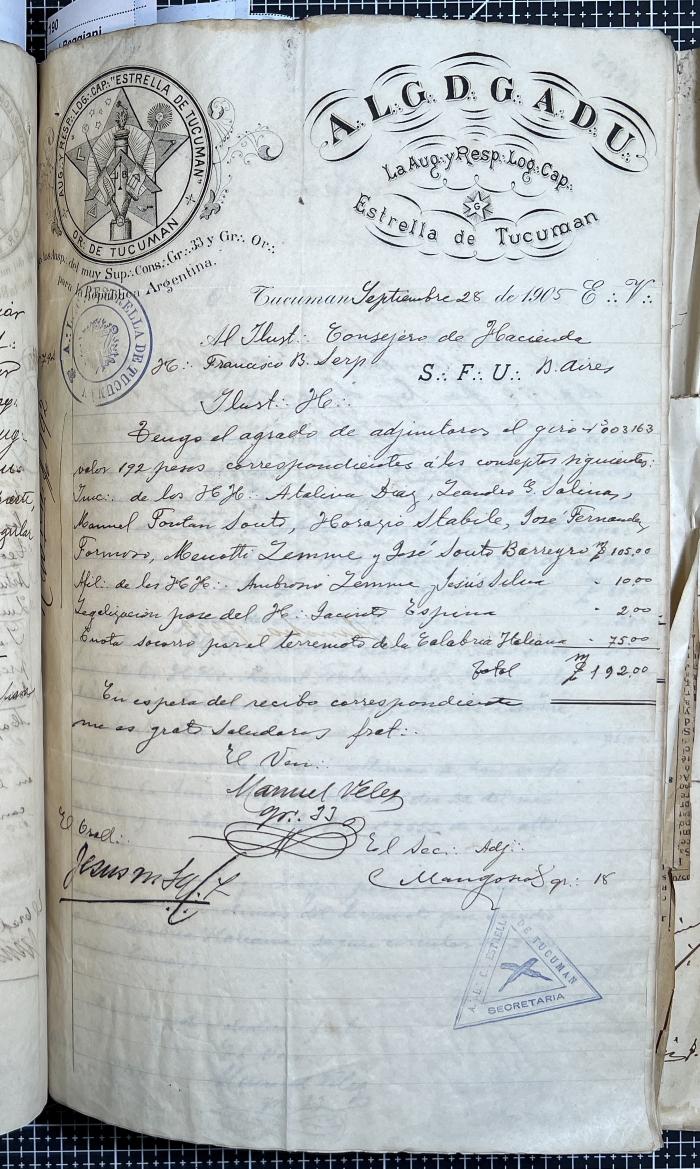 190
AUG∴ Y RESP∴ LOG∴ CAP∴ "ESTRELLA DE TUCUMAN"
OR. DE TUCUMAN
Ausp∴ del muy Sup∴ Cons∴ Gr∴ 33 y Gr∴ Or∴
para la República Argentina.
A∴L∴G∴D∴G∴A∴D∴U∴
La Aug∴ y Resp∴ Log∴ Cap∴
G
Estrella de Tucuman
ESTRELLA DE TUCUMAN
Tucuman Septiembre 28 de 1905 E∴ V∴
Al Ilust∴ Consejero de Hacienda
H∴ Francisco B. Serp S∴ F∴ U∴ B. Aires
Ilust∴ H∴
Tengo el agrado de adjuntaros el giro Nº 003163
valor 192 pesos correspondientes á los conceptos siguientes:
Inic∴ de los HH∴ Ataliva Diaz, Leandro G. Salinas,
Manuel Foutan Souto, Horazio Stabile, José Fernandez
Formoso, Menotti Zemme y José Souto Barreyro $ 105.00
Afil∴ de los HH∴ Ambrosio Zemme y Jesus Silva " 10.00
Legalización pase del H∴ Jacinto Espina " 2.00
Cuota socorro por el terremoto de la Calabria Italiana " 75.00
total m$ 192.00
En espera del recibo correspondiente
me es grat saludaros frat∴
El Ven∴
Manuel Velez
gr. 33
El Orad∴
Jesus M.
El Sec∴ Adj∴
gr∴ 18
ESTRELLA DE TUCUMAN
SECRETARIA